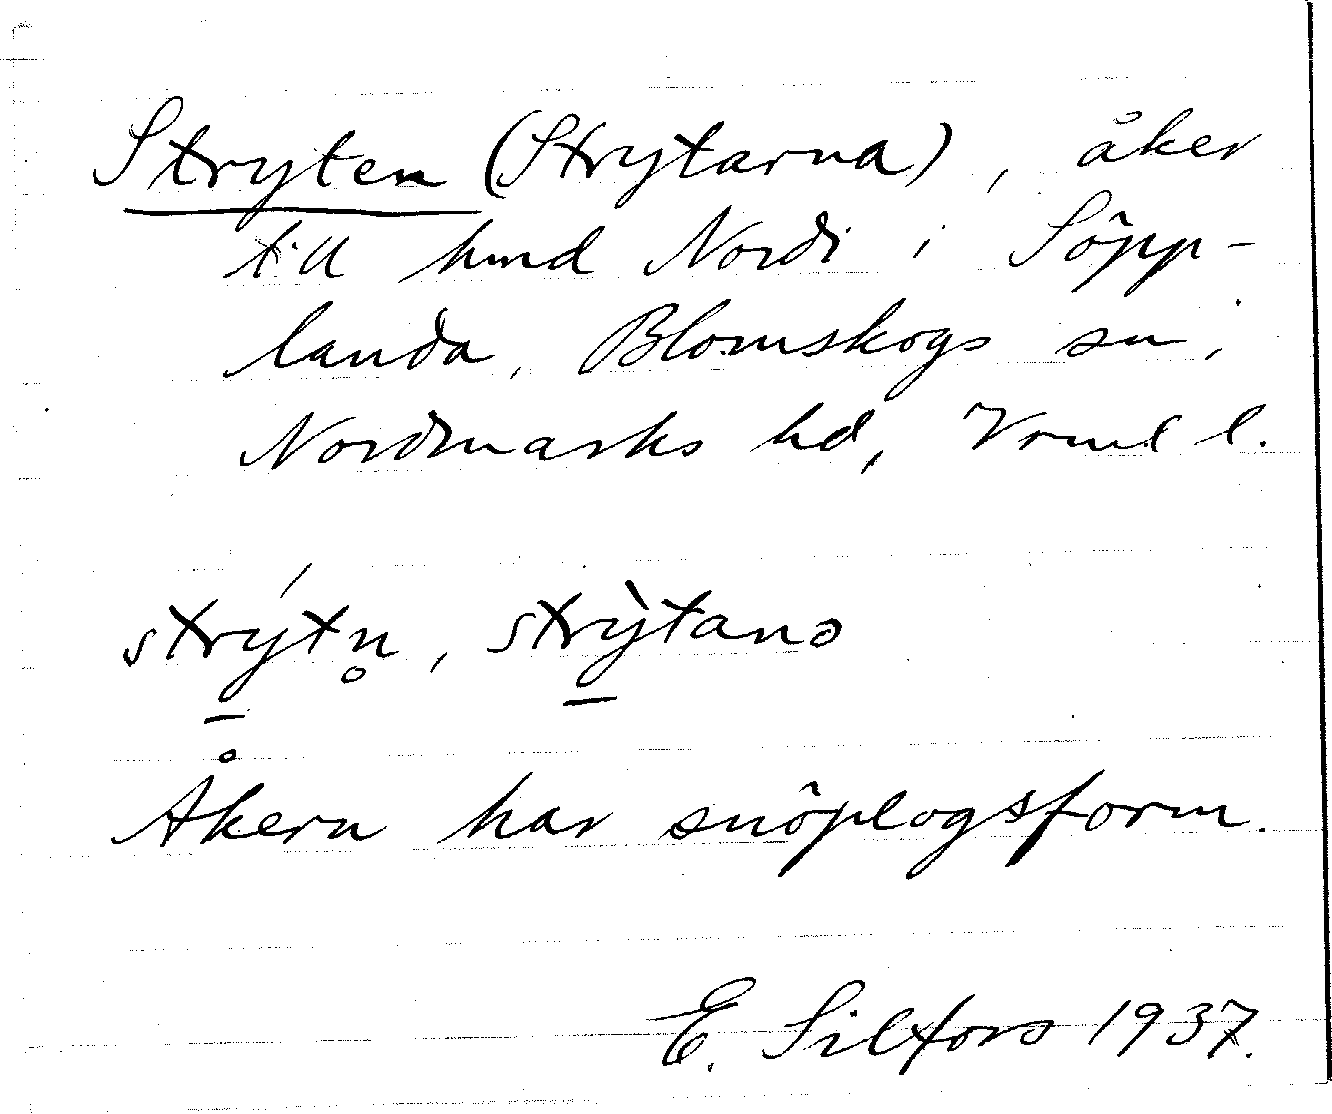 Stryten (Strytarna), åker
till hmd Nordi i Söpp-
landa, Blomskogs sn,
Nordmarks hd, Vrml l.
strýtn̥, strỳtanə
Åkern har snöplogsform.
E. Silfors 1937.